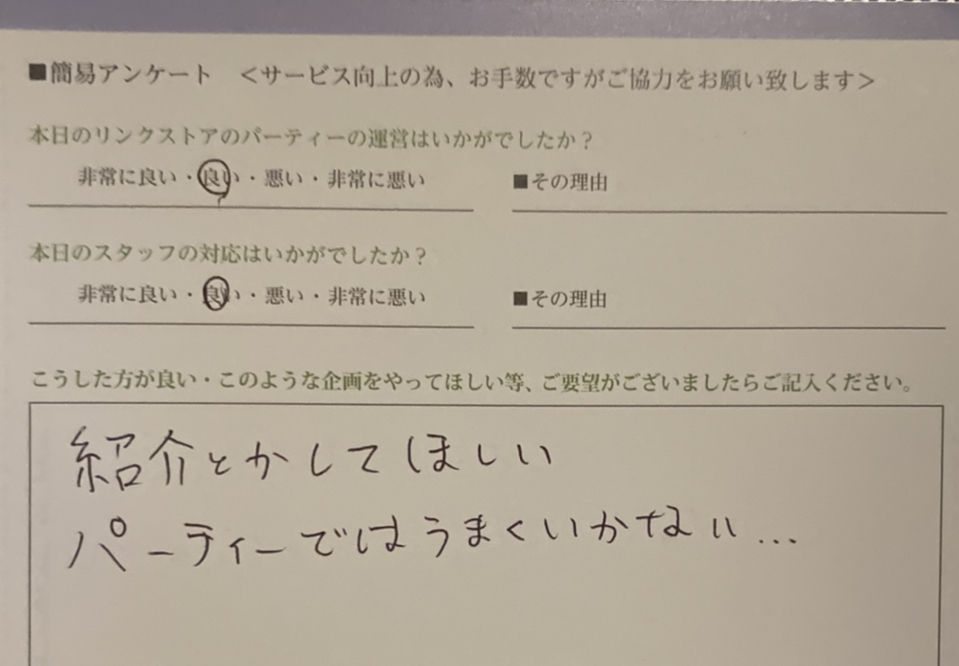 ■簡易アンケート <サービス向上の為、お手数ですがご協力をお願い致します>
本日のリンクストアのパーティーの運営はいかがでしたか？
非常に良い・良い・悪い・非常に悪い ■その理由
本日のスタッフの対応はいかがでしたか？
非常に良い・良い・悪い・非常に悪い ■その理由
こうした方が良い・このような企画をやってほしい等、ご要望がございましたらご記入ください。
紹介とかしてほしい
パーティーではうまくいかない…